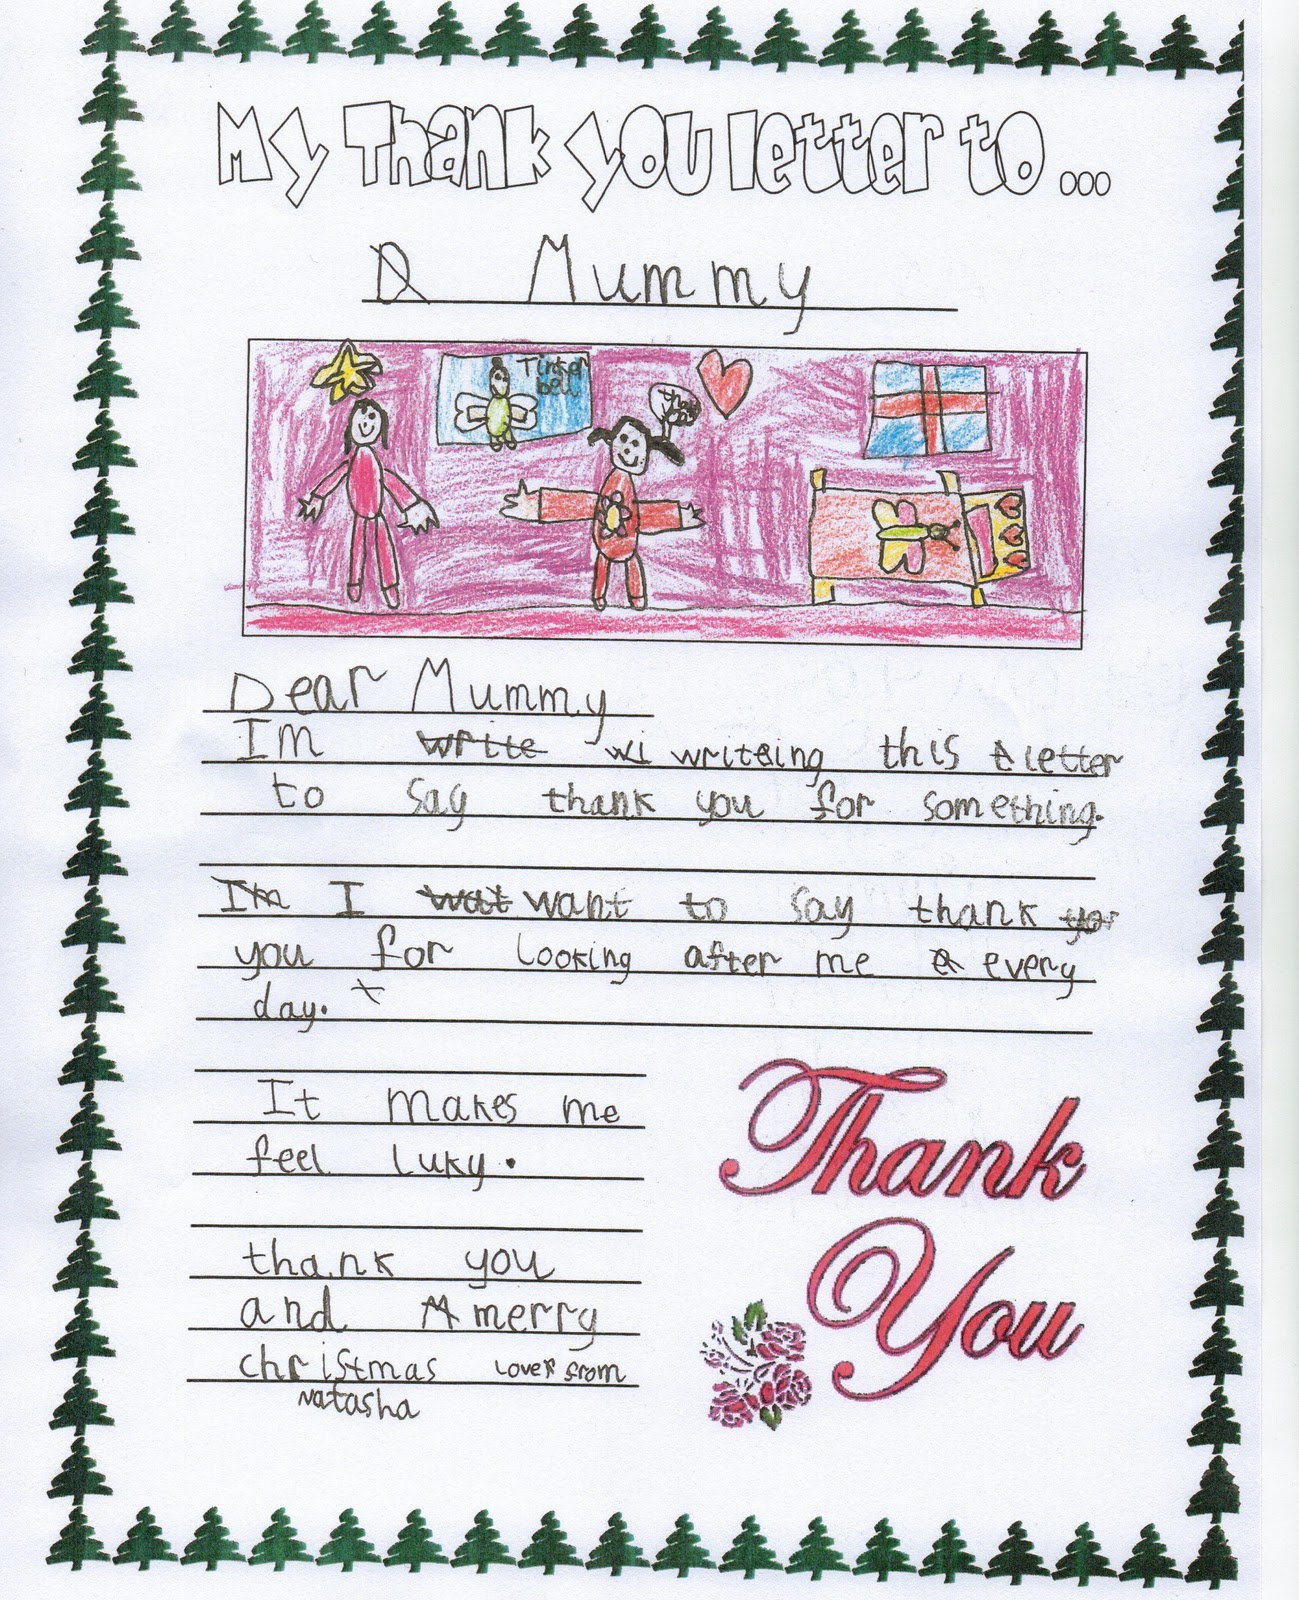 My Thank you letter to ...
D Mummy
Tinker
bell
Dear Mummy
Im write wi writeing this t letter
to say thank you for something.
Im I wat want to say thank yor
you for looking after me e every
day. t
It makes me
feel luky.
thank you
and M merry
christmas love from
Natasha
Thank
You